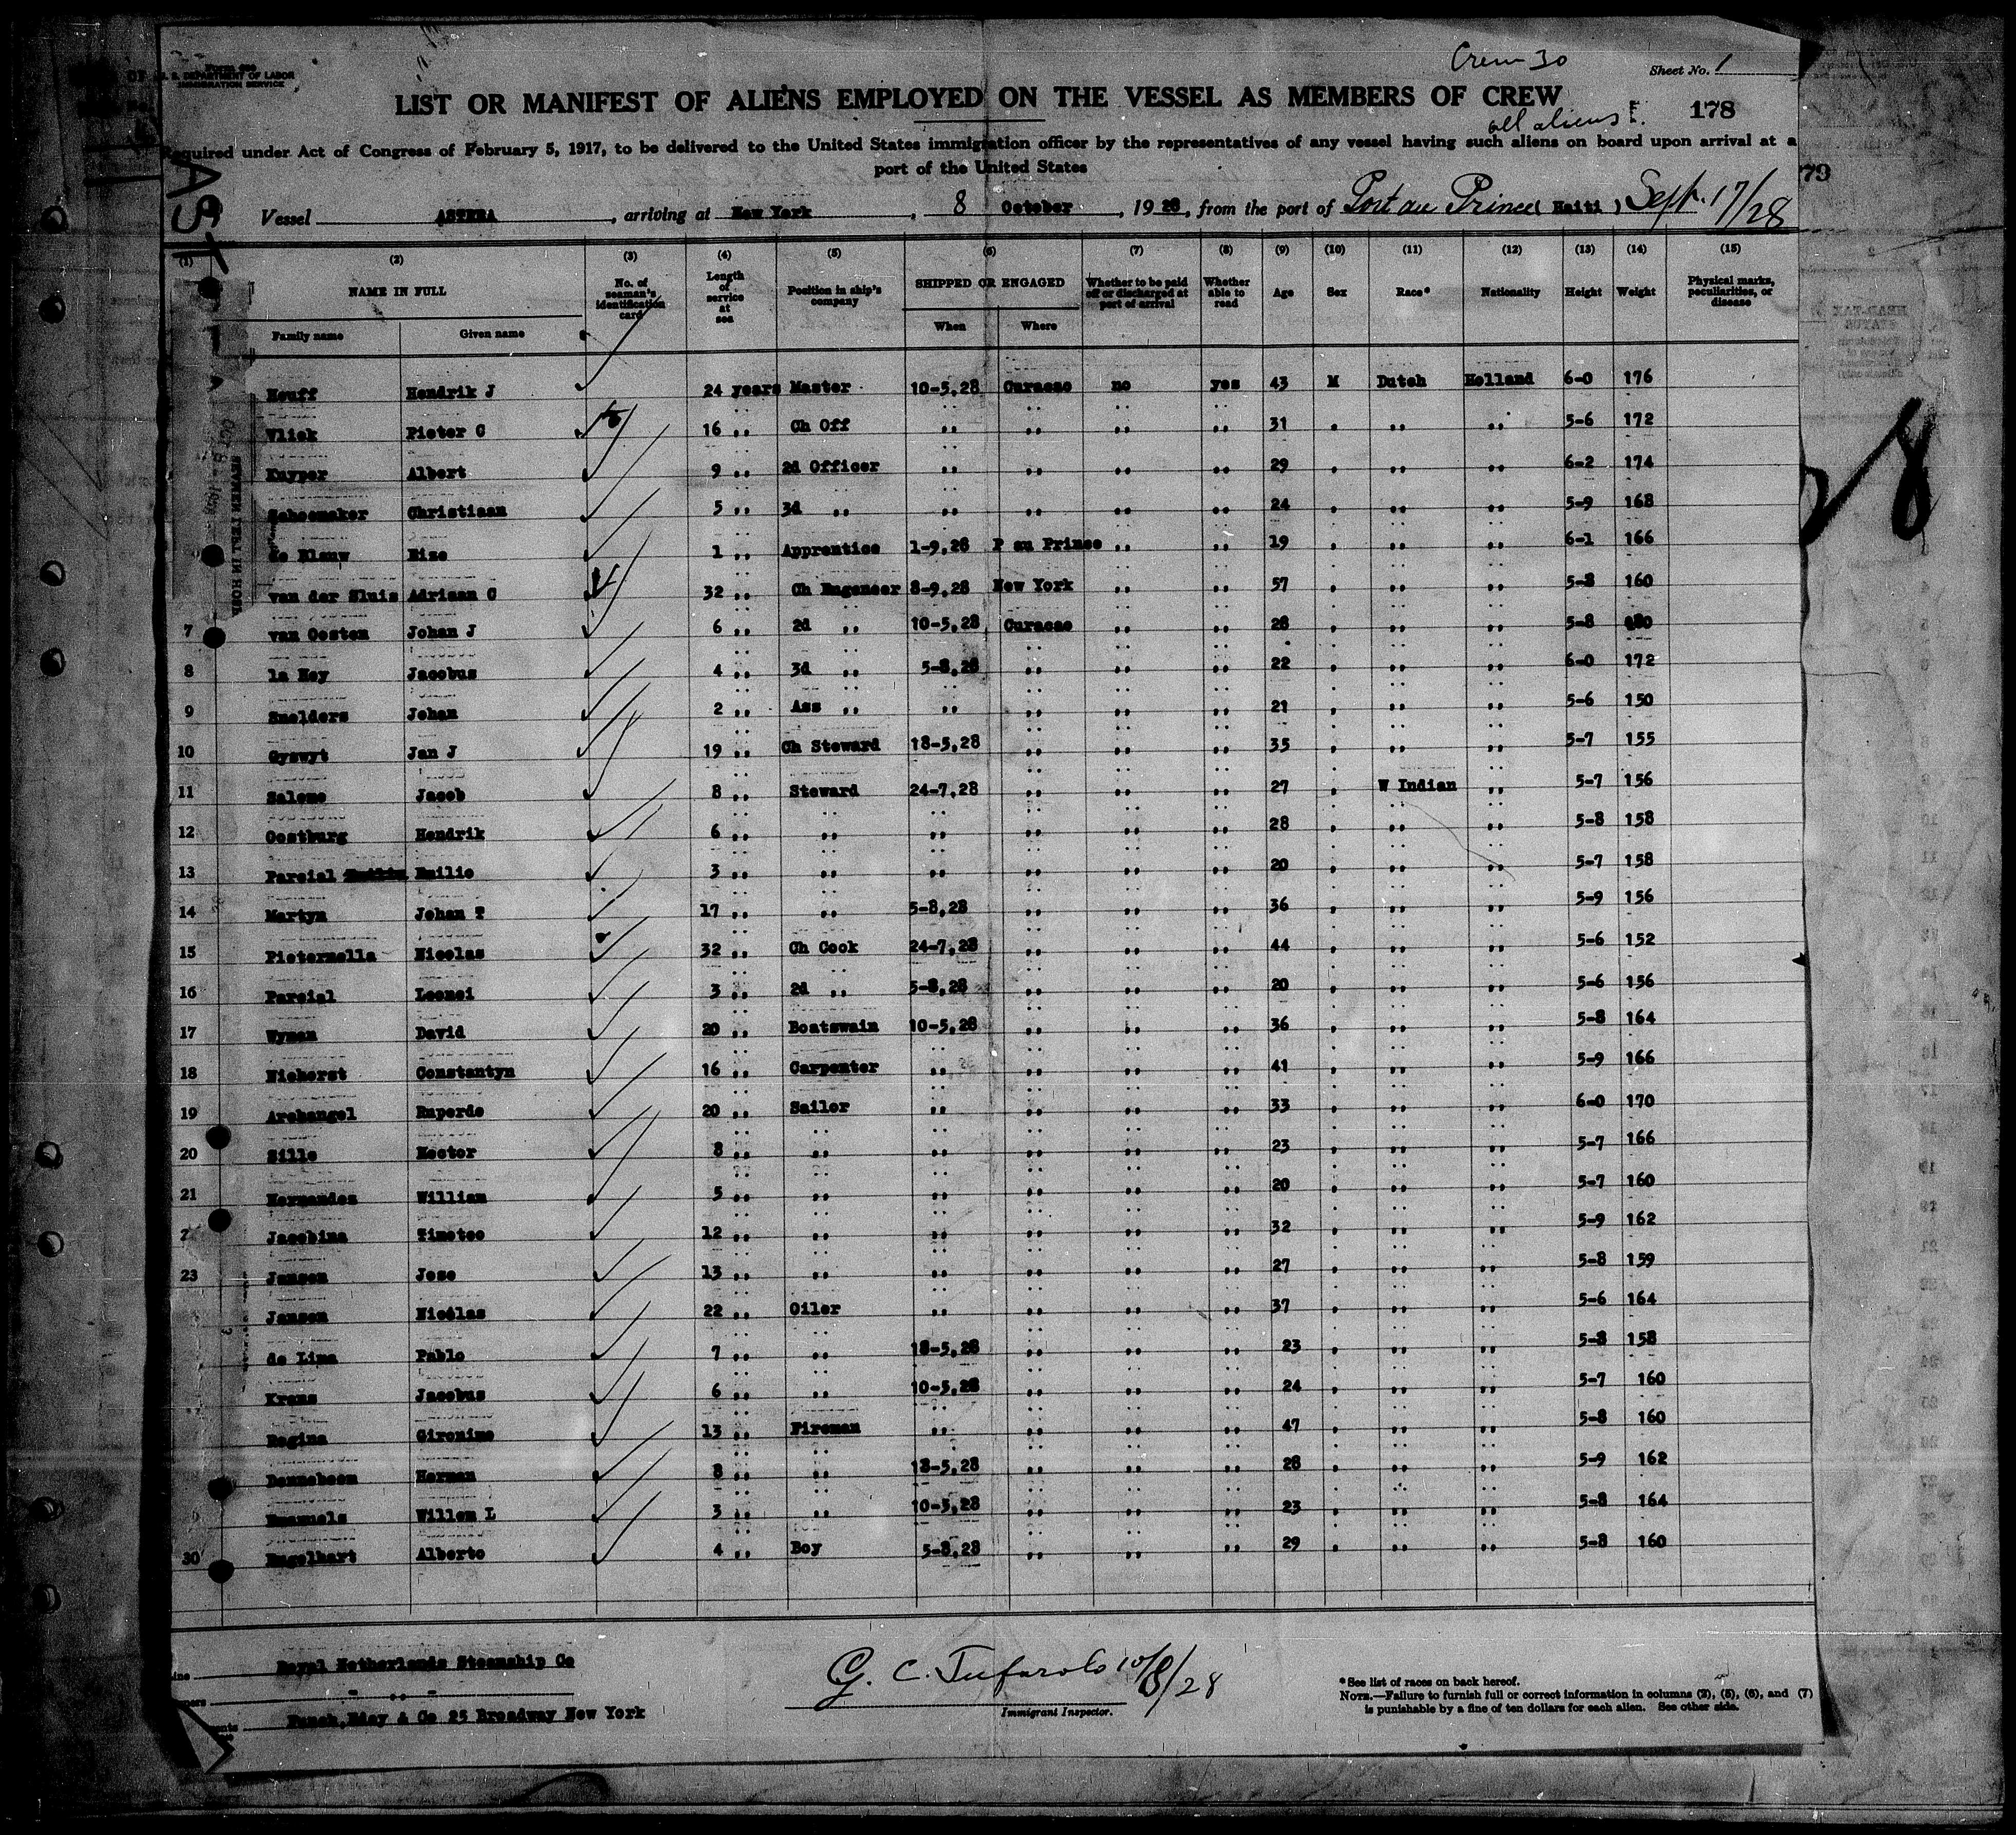 Form 680
U. S. DEPARTMENT OF LABOR
IMMIGRATION SERVICE
Crew 30
Sheet No. 1
LIST OR MANIFEST OF ALIENS EMPLOYED ON THE VESSEL AS MEMBERS OF CREW
all aliens
178
Required under Act of Congress of February 5, 1917, to be delivered to the United States immigration officer by the representatives of any vessel having such aliens on board upon arrival at a
port of the United States
79
Vessel ASTREA, arriving at New York, 8 October, 1928, from the port of Port au Prince (Haiti) Sept. 17/28
(1) (2) (3) (4) (5) (6) (7) (8) (9) (10) (11) (12) (13) (14) (15)
NAME IN FULL No. of seaman's identification card Length of service at sea Position in ship's company SHIPPED OR ENGAGED Whether to be paid off or discharged at port of arrival Whether able to read Age Sex Race* Nationality Height Weight Physical marks, peculiarities, or disease
Family name Given name When Where
Houff Hendrik J 24 years Master 10-5,28 Curacao no yes 43 M Dutch Holland 6-0 176
Vliek Pieter C 16 ,, Ch Off ,, ,, ,, ,, 31 , ,, ,, 5-6 172
Kuyper Albert 9 ,, 2d Officer ,, ,, ,, ,, 29 , ,, ,, 6-2 174
Schoemaker Christiaan 5 ,, 3d ,, ,, ,, ,, ,, 24 , ,, ,, 5-9 168
de Blauw 1 ,, Apprentice 1-9,28 P au Prince ,, ,, 19 , ,, ,, 6-1 166
van der Sluis Adriaan C 32 ,, Ch Engeneer 8-9,28 New York ,, ,, 57 , ,, ,, 5-8 160
7 van Oosten Johan J 6 ,, 2d ,, 10-5,28 Curacao ,, ,, 28 , ,, ,, 5-8
8 la Hey Jacobus 4 ,, 3d ,, 5-8,28 ,, ,, ,, 22 , ,, ,, 6-0 172
9 Smelders Johan 2 ,, Ass ,, ,, ,, ,, ,, 21 , ,, ,, 5-6 150
10 Gyswyt Jan J 19 ,, Ch Steward 18-5,28 ,, ,, ,, 35 , ,, ,, 5-7 155
11 Salomo Jacob 8 ,, Steward 24-7,28 ,, ,, ,, 27 , W Indian ,, 5-7 156
12 Oostburg Hendrik 6 ,, ,, ,, ,, ,, ,, 28 , ,, ,, 5-8 158
13 Parcial Emilio 3 ,, ,, ,, ,, ,, ,, 20 , ,, ,, 5-7 158
14 Martyn Johan T 17 ,, ,, 5-8,28 ,, ,, ,, 36 , ,, ,, 5-9 156
15 Pieternella Nicolas 32 ,, Ch Cook 24-7,28 ,, ,, ,, 44 , ,, ,, 5-6 152
16 Parcial Leonci 3 ,, 2d ,, 5-8,28 ,, ,, ,, 20 , ,, ,, 5-6 156
17 Wyman David 20 ,, Boatswain 10-5,28 ,, ,, ,, 36 , ,, ,, 5-8 164
18 Niehorst Constantyn 16 ,, Carpenter ,, ,, ,, ,, 41 , ,, ,, 5-9 166
19 Archangel Ruperdo 20 ,, Sailor ,, ,, ,, ,, 33 , ,, ,, 6-0 170
20 Sille Hector 8 ,, ,, ,, ,, ,, ,, 23 , ,, ,, 5-7 166
21 Hernandes William 5 ,, ,, ,, ,, ,, ,, 20 , ,, ,, 5-7 160
2 Jacobina Timoteo 12 ,, ,, ,, ,, ,, ,, 32 , ,, ,, 5-9 162
23 Jansen Jose 13 ,, ,, ,, ,, ,, ,, 27 , ,, ,, 5-8 159
Jansen Nicolas 22 ,, Oiler ,, ,, ,, ,, 37 , ,, ,, 5-6 164
de Lima Pablo 7 ,, ,, 18-5,28 ,, ,, ,, 23 , ,, ,, 5-8 158
Krans Jacobus 6 ,, ,, 10-5,28 ,, ,, ,, 24 , ,, ,, 5-7 160
Regina Gironimo 13 ,, Fireman ,, ,, ,, ,, 47 , ,, ,, 5-8 160
Denneboom Herman 8 ,, ,, 18-5,28 ,, ,, ,, 28 , ,, ,, 5-9 162
Emanuels Willem L 3 ,, ,, 10-5,28 ,, ,, ,, 23 , ,, ,, 5-8 164
30 Engelhart Alberto 4 ,, Boy 5-8,28 ,, ,, ,, 29 , ,, ,, 5-8 160
Royal Netherlands Steamship Co
- ,, -
Funch, Edey & Co 25 Broadway New York
G. C. Tufarolo 10/8/28
Immigrant Inspector.
*See list of races on back hereof.
NOTE.—Failure to furnish full or correct information in columns (2), (5), (6), and (7)
is punishable by a fine of ten dollars for each alien. See other side.